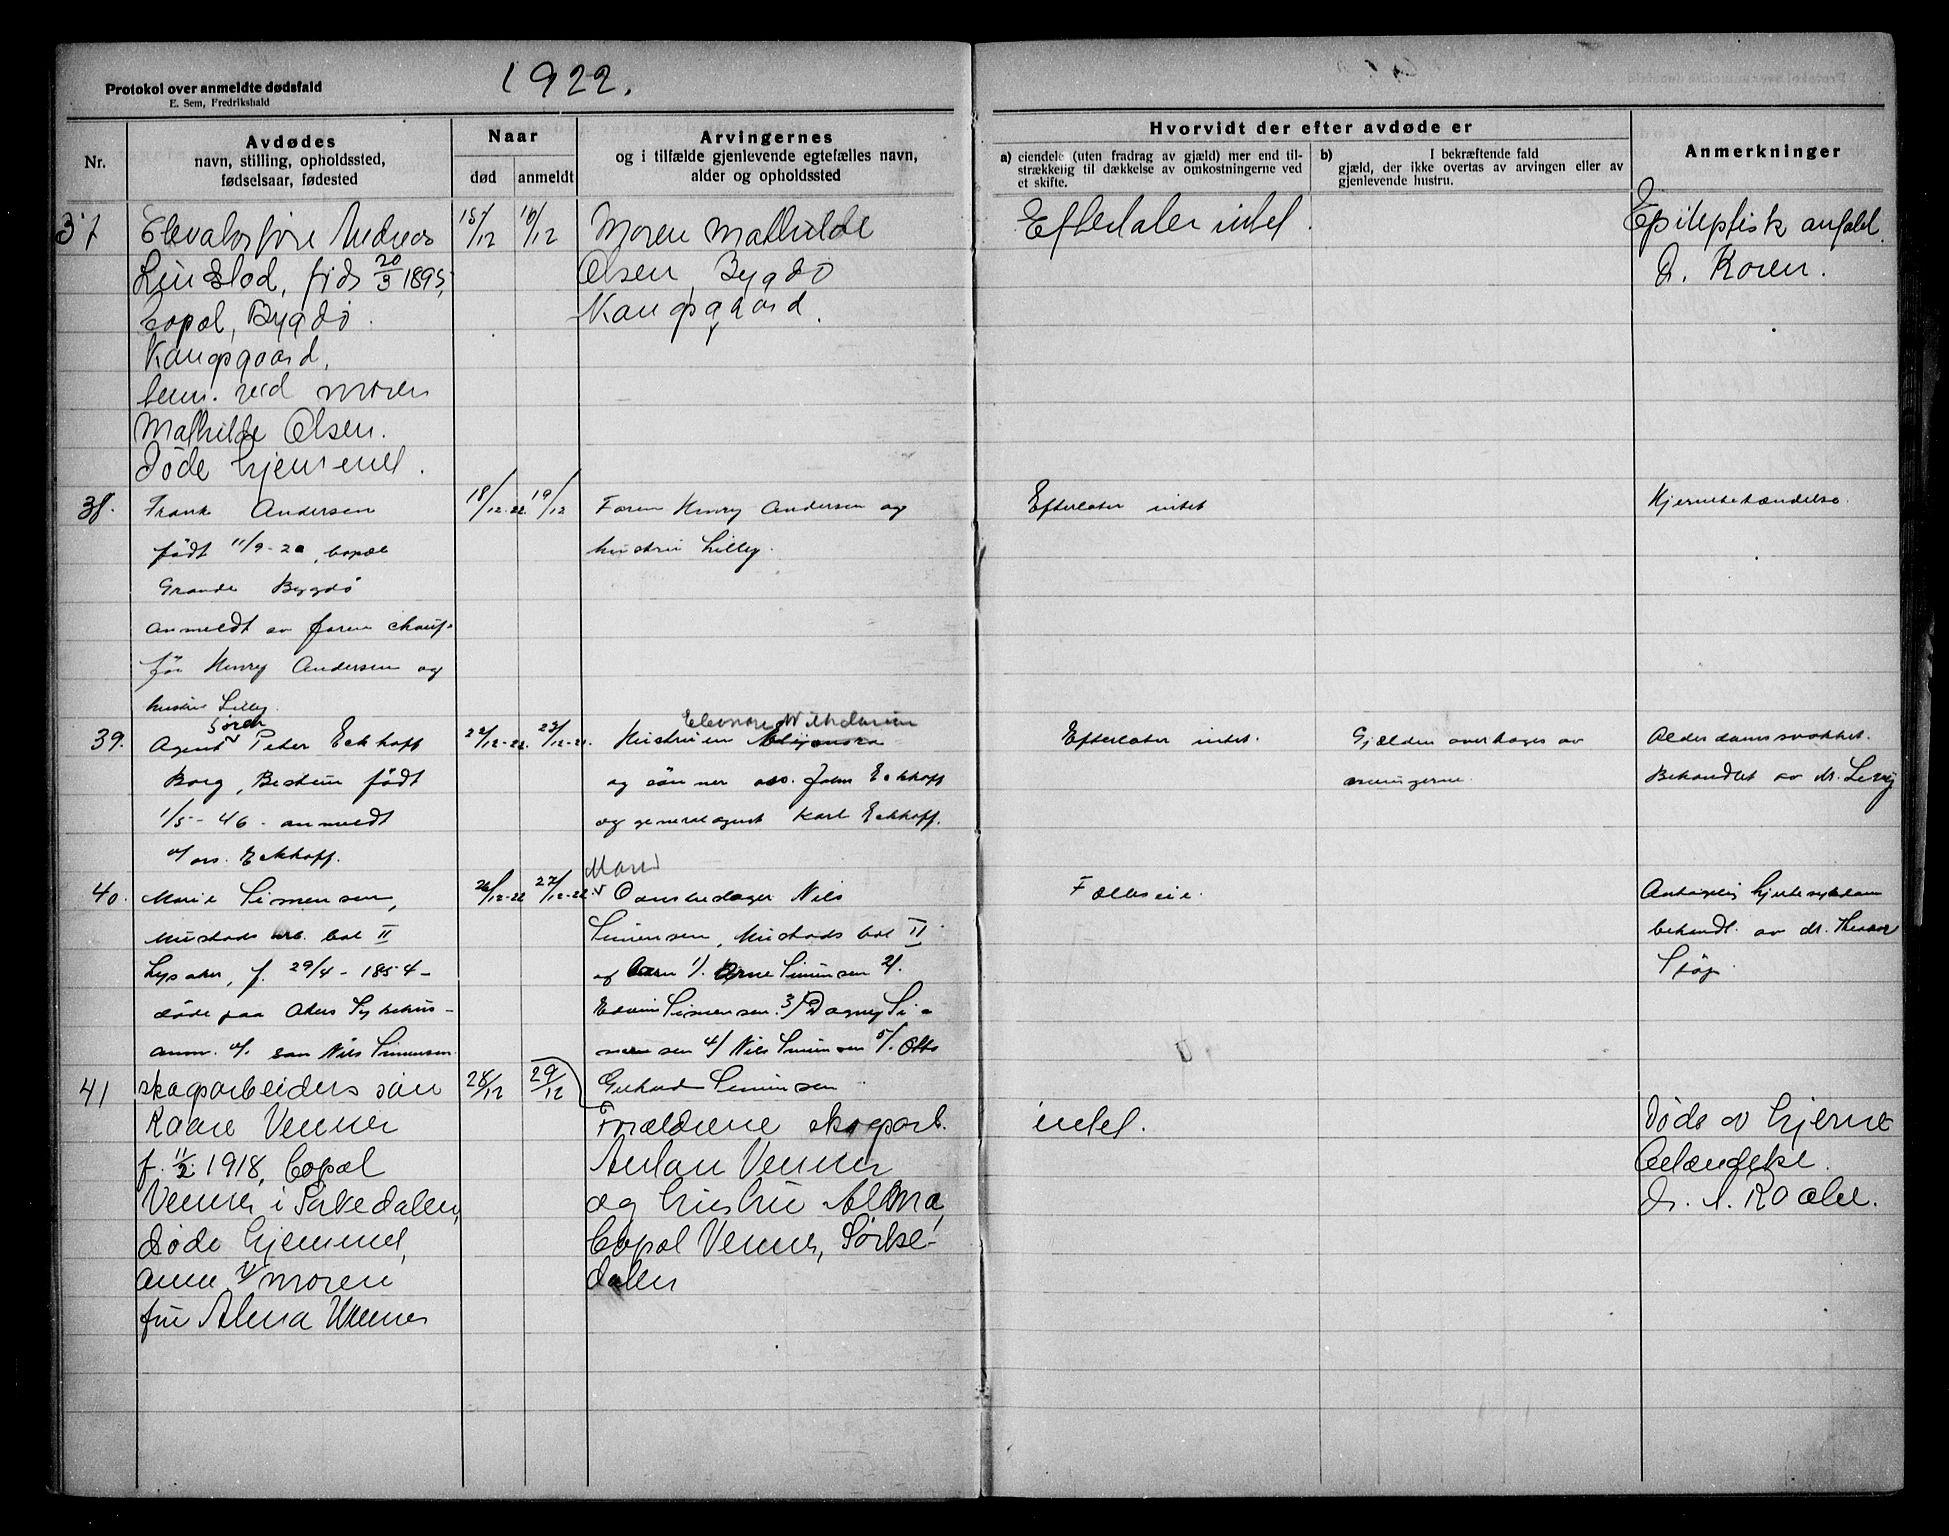 1922.
Protokol over anmeldte dødsfald
E. Sem, Fredrikshald
Nr.
Avdødes
navn, stilling, opholdssted,
fødselsaar, fødested
Naar
død
anmeldt
Arvingernes
og i tilfælde gjenlevende egtefælles navn,
alder og opholdssted
Hvorvidt der efter avdøde er
a) eiendele (uten fradrag av gjæld) mer end til-
strækkelig til dækkelse av omkostningerne ved
et skifte.
b) I bekræftende fald
gjæld, der ikke overtas av arvingen eller av
gjenlevende hustru.
Anmerkninger
37
Andreas
20/3 1895,
bopæl, Bygdø
Kongsgaard,
anm. ved moren
Mathilde Olsen.
Døde hjemmet.
15/12
16/12
Moren Mathilde
Olsen, Bygdø
Kongsgaard.
Efterlater intet.
Epileptisk anfald.
Dr. Koren.
38.
Frank Andersen
født 11/9-20, bopæl
Grande Bygdø
anmeldt av faren chauf-
før Henry Andersen og
hustru Lilly.
18/12.22
19/12
Faren Henry Andersen og
hustru Lilly.
Efterlater intet
Hjernebetændelse.
39.
Søren
Agent Peter Eckhoff
Borg, Bestum født
1/5-46 - anmeldt
v/ ors. Eckhoff.
22/12-22.
23/12-22.
Eleonore Wilhelmine
Hustruen
og sønner ors. John Eckhoff
og generalagent Karl Eckhoff.
Efterlater intet.
Gjælden overtages av
arvingerne.
Alderdomssvakhet.
Behandlet av dr. Levy
40.
Marie Simensen,
Mustads arb. bol II
Lysaker, f. 29/4-1854-
døde paa Akers Sykehus-
anm. v/. søn Nils Simensen.
26/12-22
27/12-22
Mand
Nils
Simensen, Mustads bol II
og barn 1/. Arne Simensen 2/.
Edvin Simensen. 3/ Dagny Si-
mensen 4/ Nils Simensen 5/. Otto
Gerhard Simensen
Fælleseie.
Antagelig hjertesykdom
behandl. av dr. Theodor
41
skogsarbeiders søn
Kaare Venner
f. 11/2. 1918, bopæl
Venner i Sørkedalen,
døde hjemmet,
anm. v/ moren
fru Alma Venner
28/12
29/12
Forældrene skogsarb.
Anton Venner
og hustru Alma,
bopæl Venner, Sørke-
dalen
intet.
Døde av hjerne
betændelse.
dr. A. Raabe.